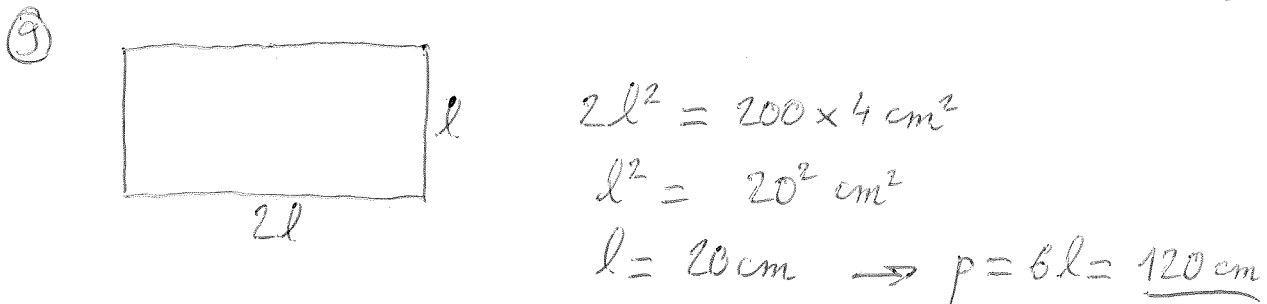 9
l
2l
2l² = 200 × 4 cm²
l² = 20² cm²
l = 20 cm → p = 6l = 120 cm